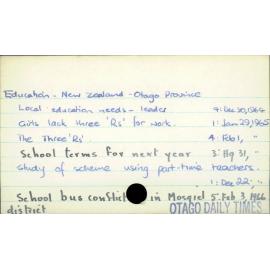 Education - New Zealand - Otago Province
Local education needs - leader 9: Dec 30, 1964
Girls lack three 'Rs' for work. 1: Jan 29, 1965
The Three 'Rs'. 4: Feb 1, "
School terms for next year 3: Ag 31, "
Study of scheme using part-time teachers.
1: Dec 22, "
School bus conflict in Mosgiel 5 Feb 3, 1966
district OTAGO DAILY TIMES